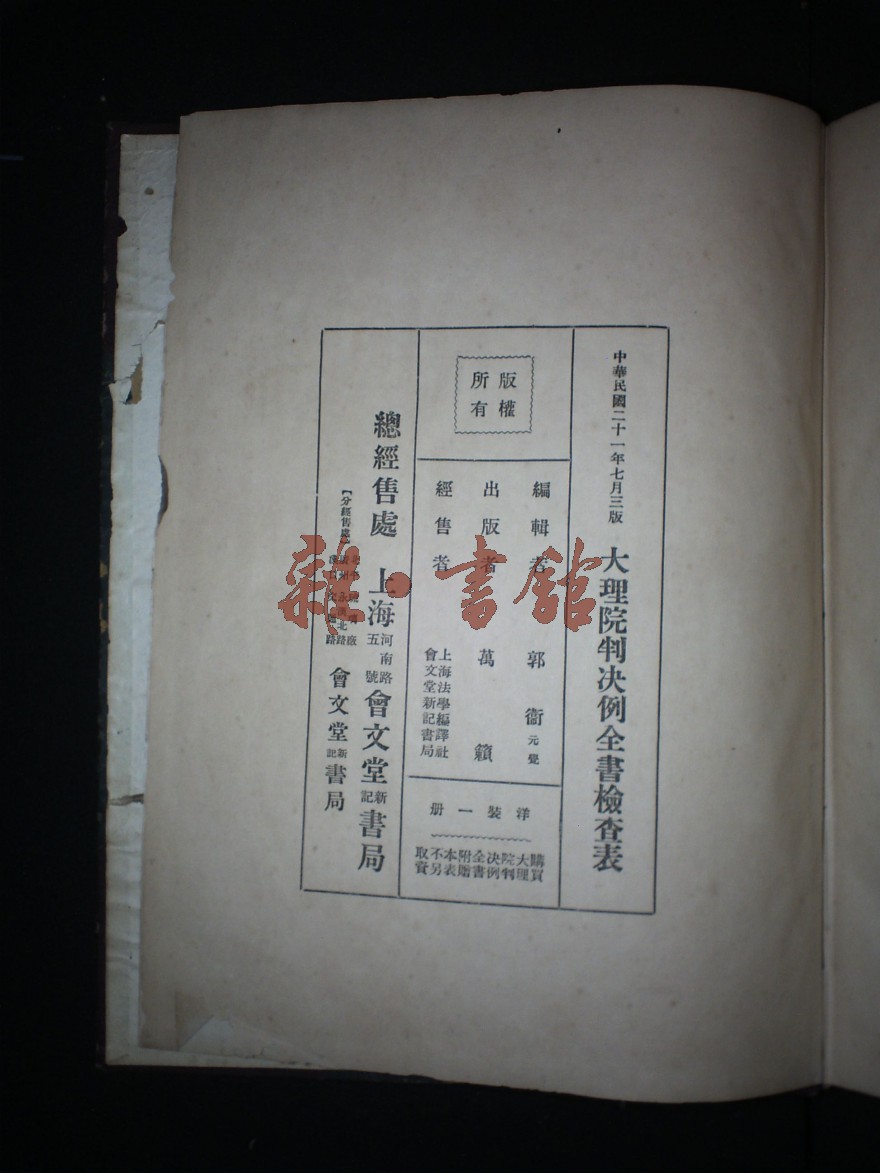 中華民國二十一年七月三版
大理院判決例全書檢查表
版權
所有
編輯者 郭衞元覺
出版者 萬籟
經售者 上海法學編譯社
會文堂新記書局
洋裝一册
購買
大理
院判
決例
全書
附贈
本表
不另
取資
總經售處 上海河南路五號會文堂新記書局
【分經售處】
會文堂新記書局
雜·書館